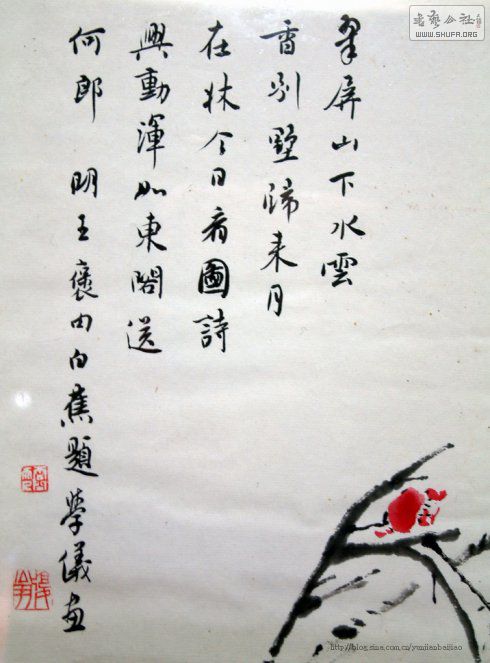 書藝公社
WWW.SHUFA.ORG
翠屏山下水雲
香別墅歸来月
在牀今日看圖詩
興動渾如東閣送
何郎 明王褒句白蕉題學儀画
http://blog.sina.com.cn/yunjianbaijiao